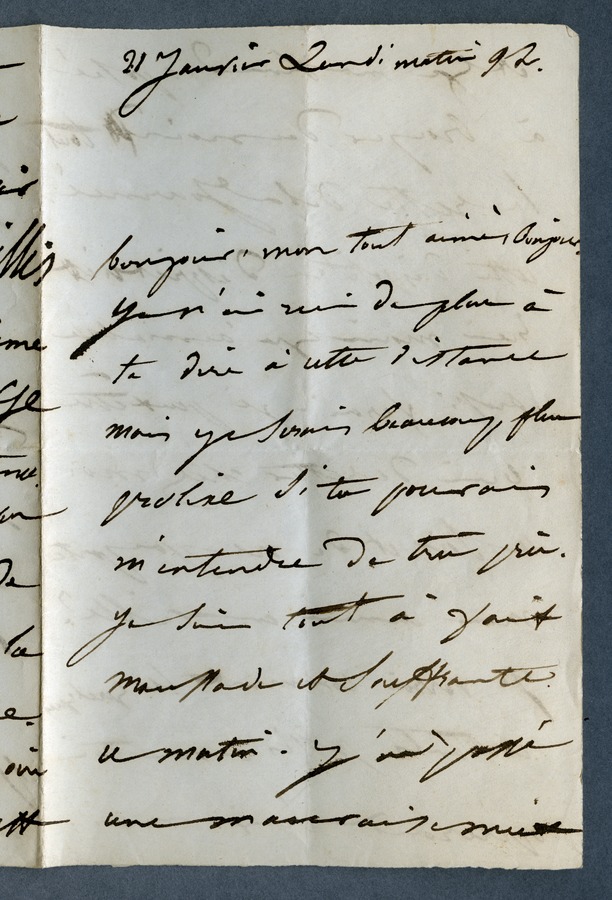 21 Janvier Lundi matin 9 h.
bonjour, mon tout aimé, bonjour,
Je n'ai rien de plus à
te dire à cette distance
mais je serais beaucoup plus
prolixe si tu pouvais
m'entendre de très près.
Je suis tout à fait
maussade et souffrante
ce matin. J'ai passé
une mauvaise nuit
ime
de
la